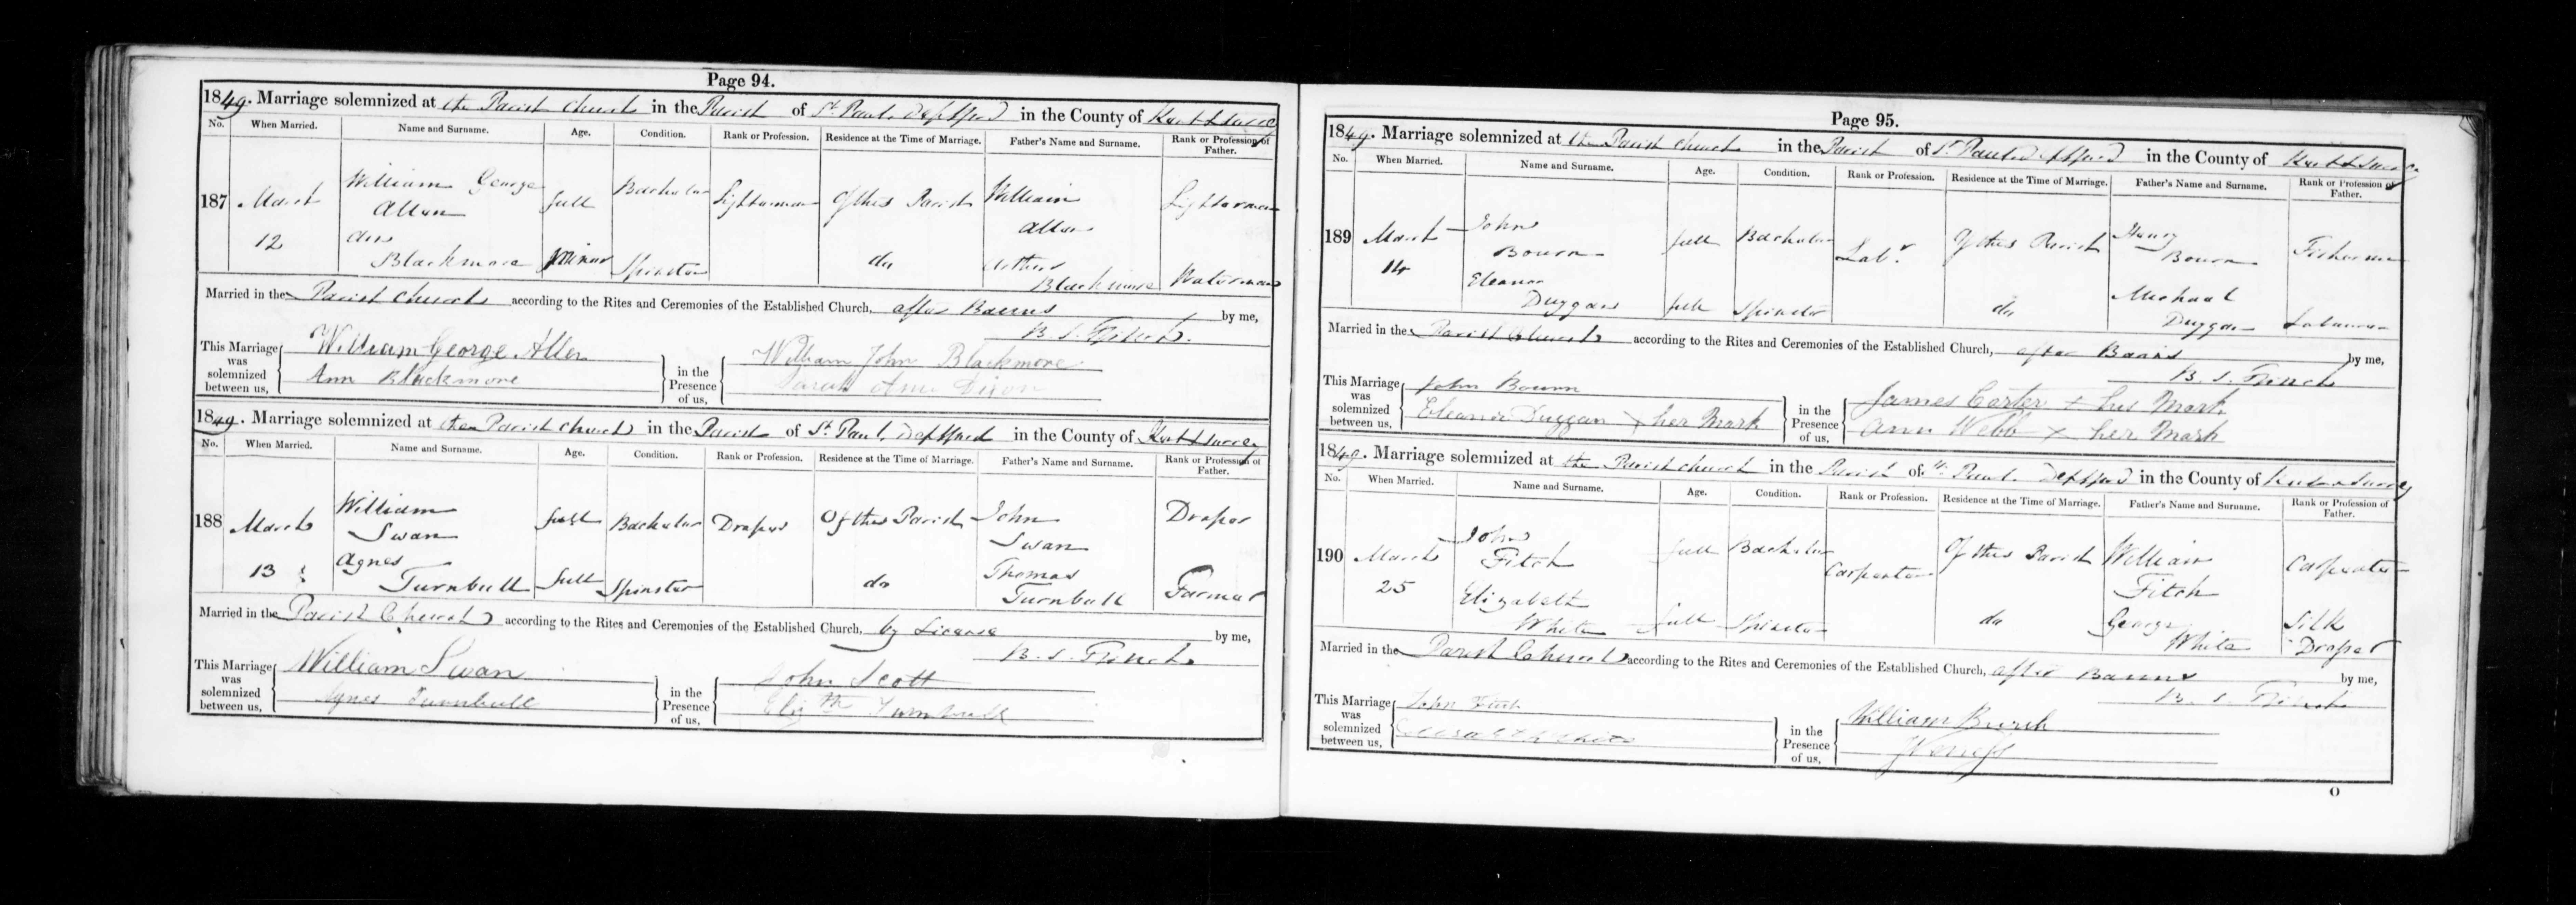 Page 94.
1849. Marriage solemnized at the Parish Church in the Parish of St Paul, Deptford in the County of Kent & Surrey
No. When Married. Name and Surname. Age. Condition. Rank or Profession. Residence at the Time of Marriage. Father's Name and Surname. Rank or Profession of Father.
187 March 12 William George Allen full Bachelor Lighterman Of this Parish William Allen Lighterman
Ann Blackmore Minor Spinster do Arthur Blackmore Waterman
Married in the Parish Church according to the Rites and Ceremonies of the Established Church, after Banns by me,
B. S. Ffinch.
This Marriage was solemnized between us, William George Allen in the Presence of us, William John Blackmore
Ann Blackmore Sarah Ann Dixon
1849. Marriage solemnized at the Parish Church in the Parish of St Paul, Deptford in the County of Kent & Surrey
No. When Married. Name and Surname. Age. Condition. Rank or Profession. Residence at the Time of Marriage. Father's Name and Surname. Rank or Profession of Father.
188 March 13 William Swan full Bachelor Draper Of this Parish John Swan Draper
Agnes Turnbull full Spinster do Thomas Turnbull Farmer
Married in the Parish Church according to the Rites and Ceremonies of the Established Church, by License by me,
B. S. Ffinch.
This Marriage was solemnized between us, William Swan in the Presence of us, John Scott
Agnes Turnbull Elizth Turnbull
Page 95.
1849. Marriage solemnized at the Parish Church in the Parish of St Paul Deptford in the County of Kent & Surrey
No. When Married. Name and Surname. Age. Condition. Rank or Profession. Residence at the Time of Marriage. Father's Name and Surname. Rank or Profession of Father.
189 March 14 John Bourn full Bachelor Labr Of this Parish Henry Bourn Fisherman
Eleanor Duggan full Spinster do Michael Duggan Labourer
Married in the Parish Church according to the Rites and Ceremonies of the Established Church, after Banns by me,
B. S. Ffinch
This Marriage was solemnized between us, John Bourn in the Presence of us, James Carter + his Mark
Eleanor Duggan x her Mark Ann Webb x her Mark
1849. Marriage solemnized at the Parish Church in the Parish of St Paul, Deptford in the County of Kent & Surrey
No. When Married. Name and Surname. Age. Condition. Rank or Profession. Residence at the Time of Marriage. Father's Name and Surname. Rank or Profession of Father.
190 March 25 John Fitch full Bachelor Carpenter Of this Parish William Fitch Carpenter
Elizabeth White full Spinster do George White Silk Draper
Married in the Parish Church according to the Rites and Ceremonies of the Established Church, after Banns by me,
B. S. Ffinch
This Marriage was solemnized between us, John Fitch in the Presence of us, William Burch
Elizabeth White
O